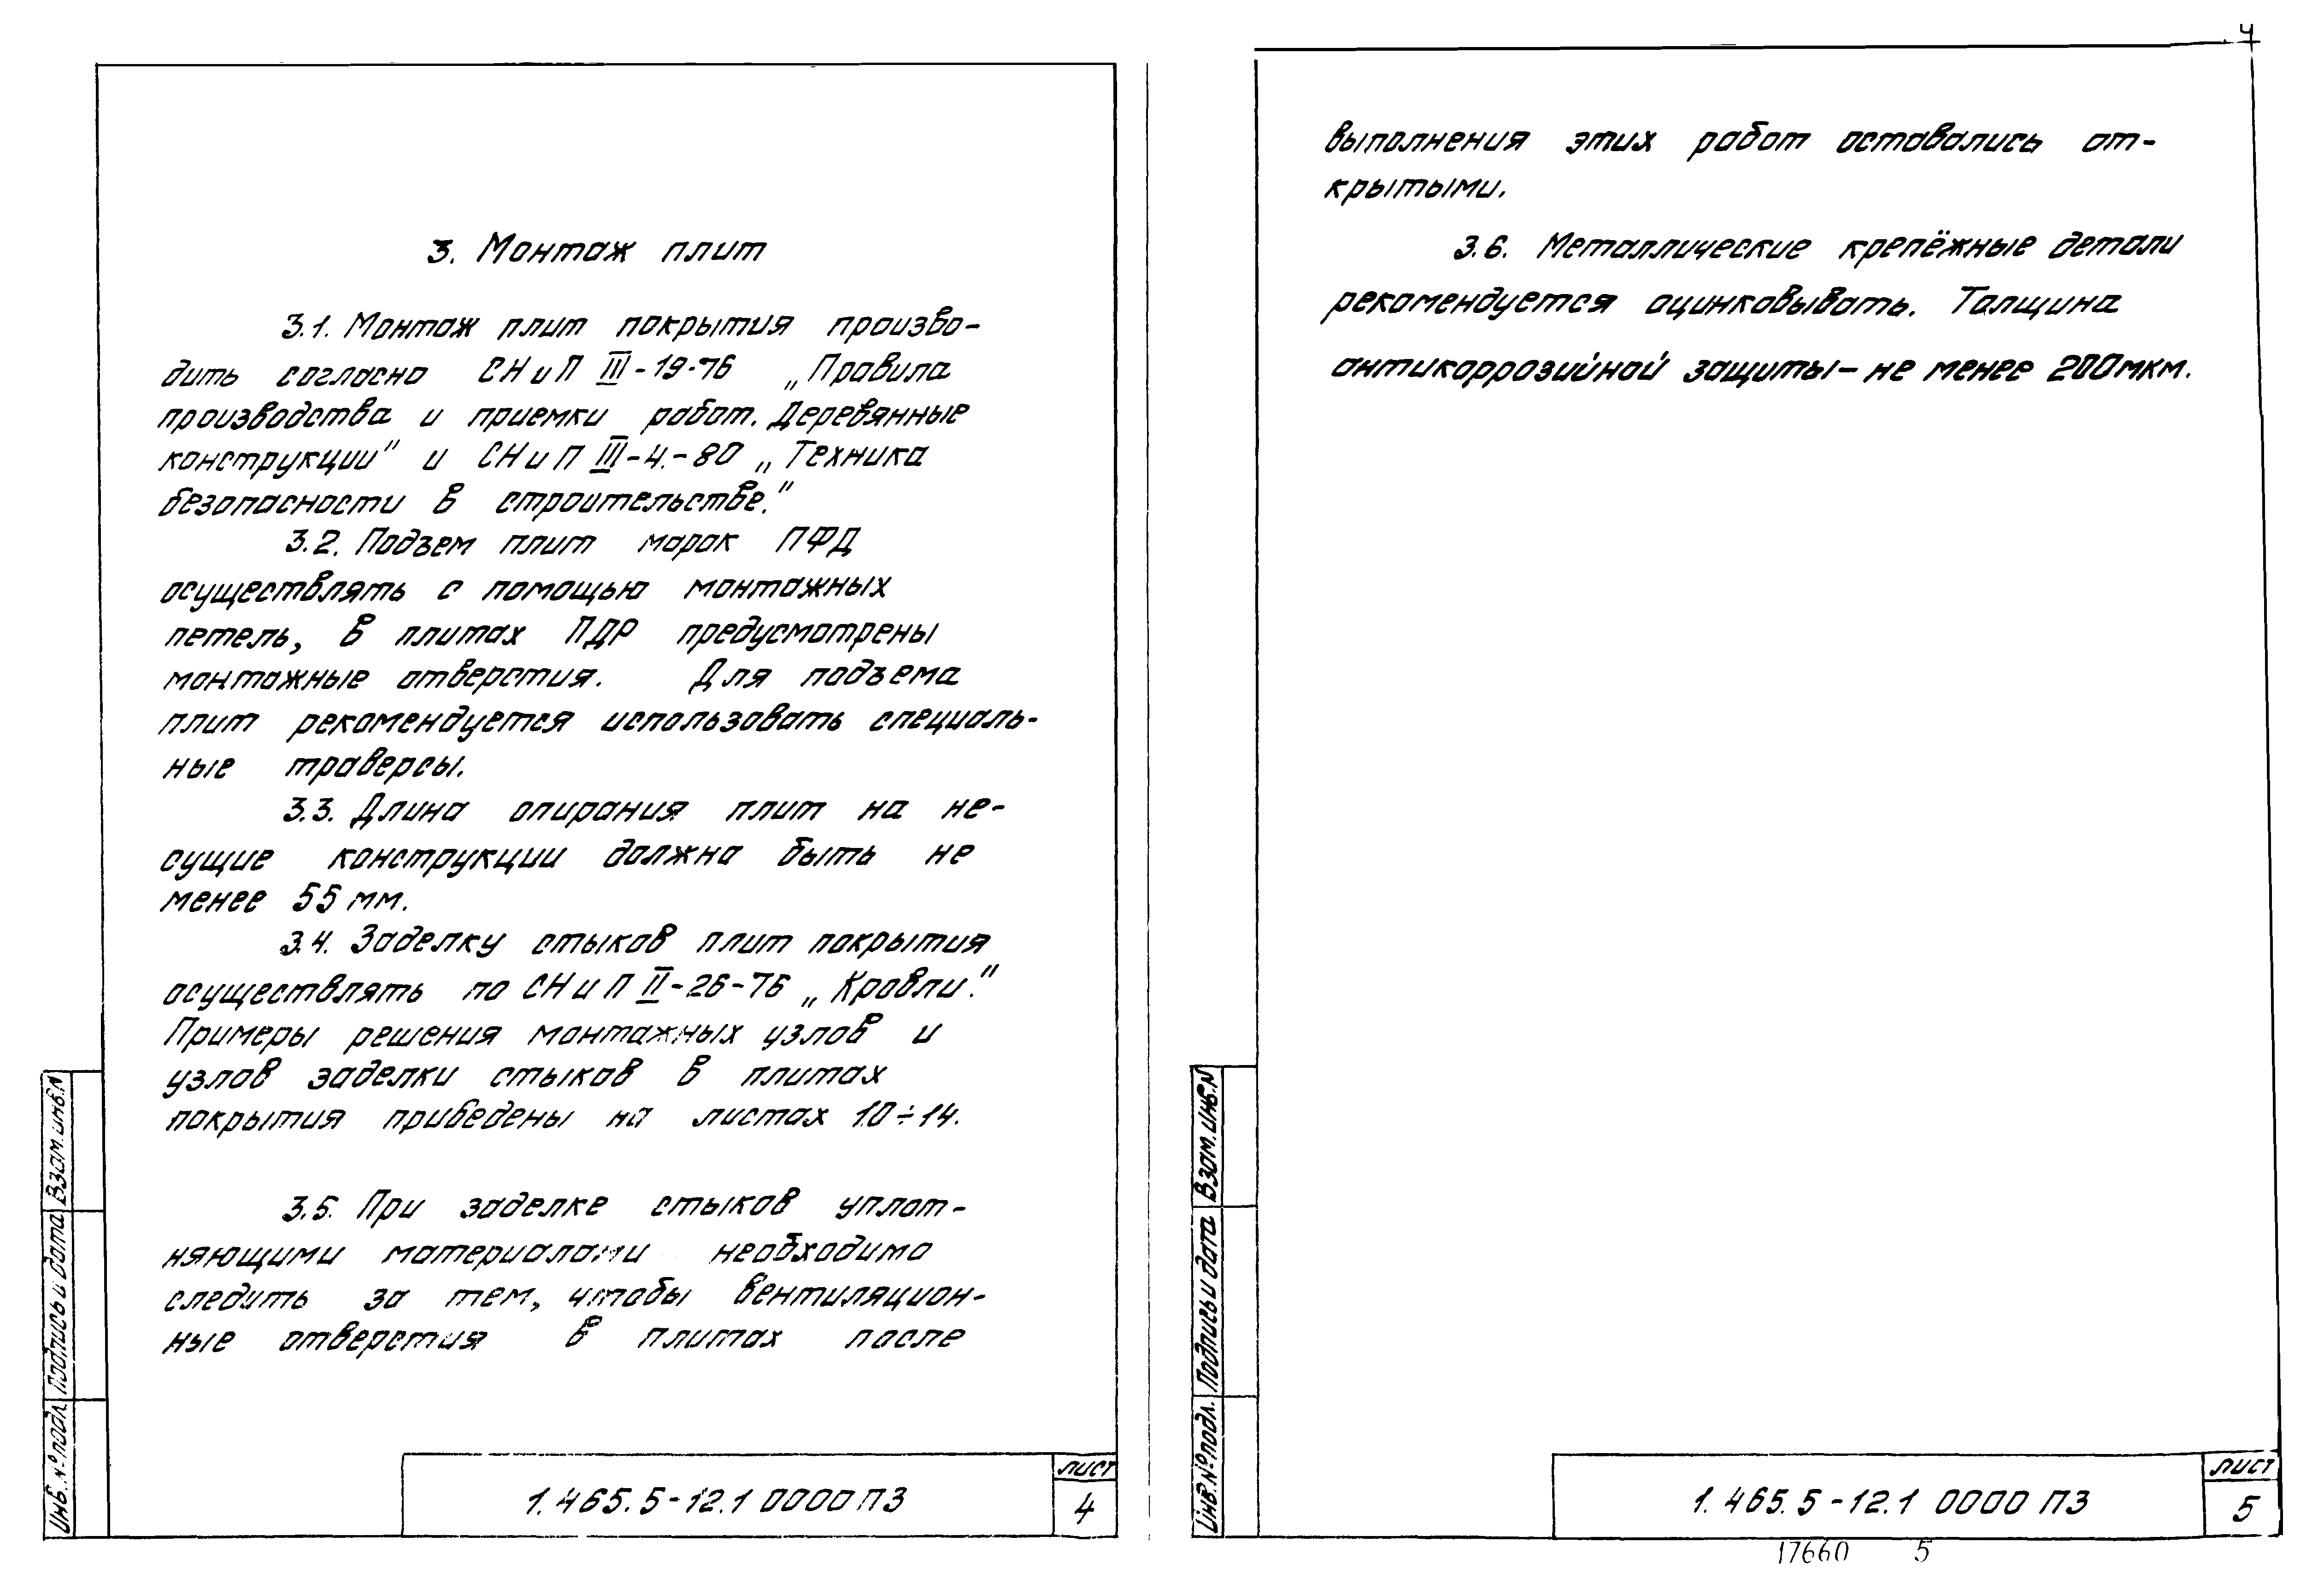 3. Монтаж плит
3.1. Монтаж плит покрытия произво-
дить согласно СНиП III-19-76 „Правила
производства и приемки работ. Деревянные
конструкции" и СНиП III-4.-80 „Техника
безопасности в строительстве."
3.2. Подъем плит марок ПФД
осуществлять с помощью монтажных
петель, в плитах ПДР предусмотрены
монтажные отверстия. Для подъема
плит рекомендуется использовать специаль-
ные траверсы.
3.3. Длина опирания плит на не-
сущие конструкции должна быть не
менее 55 мм.
3.4. Заделку стыков плит покрытия
осуществлять по СНиП II-26-76 „Кровли."
Примеры решения монтажных узлов и
узлов заделки стыков в плитах
покрытия приведены на листах 10÷14.
3.5. При заделке стыков уплот-
няющими материалами необходимо
следить за тем, чтобы вентиляцион-
ные отверстия в плитах после
Инв.№подл. Подпись и дата Взам.инв.N
1.465.5-12.1 0000 ПЗ
лист
4
4
выполнения этих работ оставались от-
крытыми.
3.6. Металлические крепёжные детали
рекомендуется оцинковывать. Толщина
антикоррозийной защиты-не менее 200мкм.
Инв.№подл. Подпись и дата Взам.инв.N
1.465.5-12.1 0000 ПЗ
лист
5
17660 5